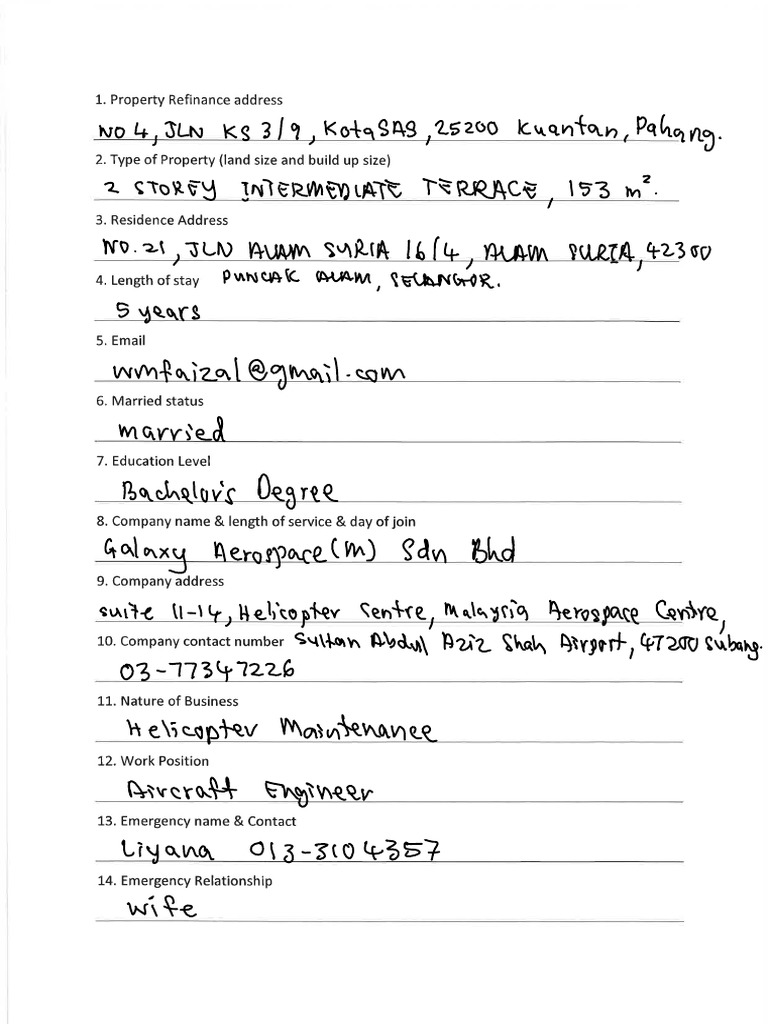 1. Property Refinance address
NO 4, JLN KS 3/9, KotaSAS, 25200 Kuantan, Pahang.
2. Type of Property (land size and build up size)
2 STOREY INTERMEDIATE TERRACE, 153 m².
3. Residence Address
NO. 21, JLN ALAM SURIA 16/4, ALAM SURIA, 42300
4. Length of stay PUNCAK ALAM, SELANGOR.
5 years
5. Email
wmfaizal@gmail.com
6. Married status
married
7. Education Level
Bachelor's Degree
8. Company name & length of service & day of join
Galaxy Aerospace (M) Sdn Bhd
9. Company address
suite 11-14, Helicopter Centre, Malaysia Aerospace Centre,
10. Company contact number Sultan Abdul Aziz Shah Airport, 47200 Subang.
03-77347226
11. Nature of Business
Helicopter Maintenance
12. Work Position
Aircraft Engineer
13. Emergency name & Contact
Liyana 013-3104357
14. Emergency Relationship
wife